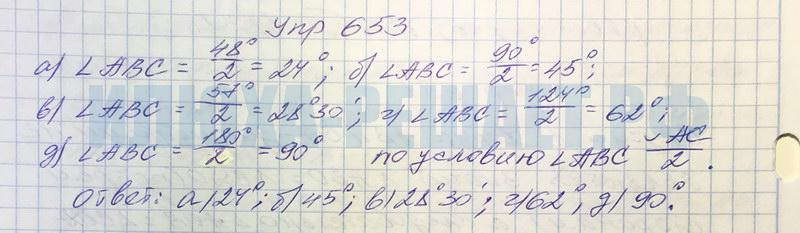 Упр 653
а) ∠ABC = 48°/2 = 24°; б) ∠ABC = 90°/2 = 45°;
в) ∠ABC = 57°/2 = 28°30′; г) ∠ABC = 124°/2 = 62°;
д) ∠ABC = 180°/2 = 90° по условию ∠ABC ◡AC/2.
Ответ: а) 24°; б) 45°; в) 28°30′; г) 62°; д) 90°.